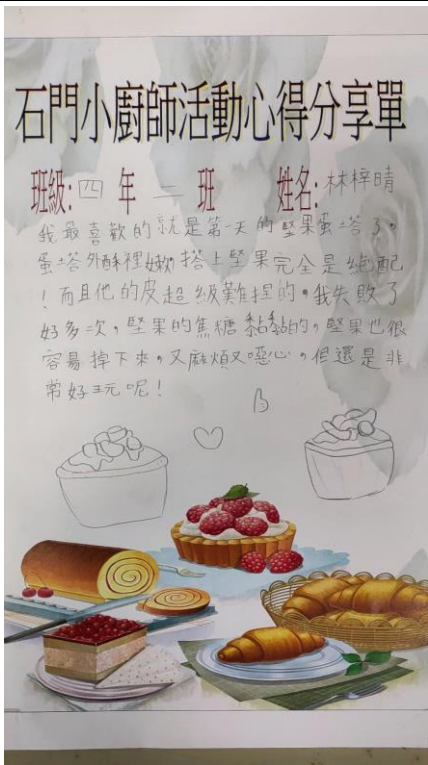 石門小廚師活動心得分享單
班級:四 年 二 班 姓名:林梓晴
我最喜歡的就是第一天的堅果蛋塔了。
蛋塔外酥裡嫩,搭上堅果完全是絕配
!而且他的皮超級難捏的。我失敗了
好多次,堅果的焦糖黏黏的,堅果也很
容易掉下來,又麻煩又噁心,但還是非
常好玩呢!